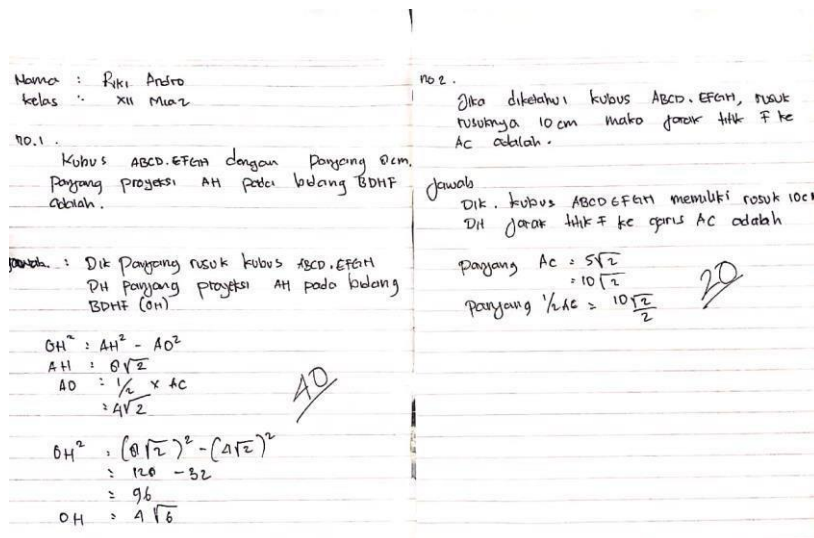 Nama : Riki Andro
kelas : XII Mia 2
no.1 .
Kubus ABCD.EFGH dengan panjang 8cm.
panjang proyeksi AH pada bidang BDHF
adalah.
Jawab : Dik panjang rusuk kubus ABCD.EFGH
DH panjang proyeksi AH pada bidang
BDHF (OH)
OH² : AH² - AO²
AH : 8√2
AO : 1/2 x AC
: 4√2
OH² : (8√2)² - (4√2)²
: 128 - 32
= 96
OH : 4√6
40
no 2 .
Jika diketahui kubus ABCD.EFGH, rusuk
rusuknya 10 cm maka jarak titik F ke
AC adalah .
Jawab
Dik . kubus ABCDEFGH memiliki rusuk 10cm
DH jarak titik F ke garis AC adalah
panjang AC = 5√2
= 10√2
panjang 1/2 AC = 10√2/2
20